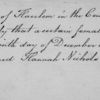 of Harlem in the Coun
ly that a certain female
nth day of December
ed Hannah Nichols